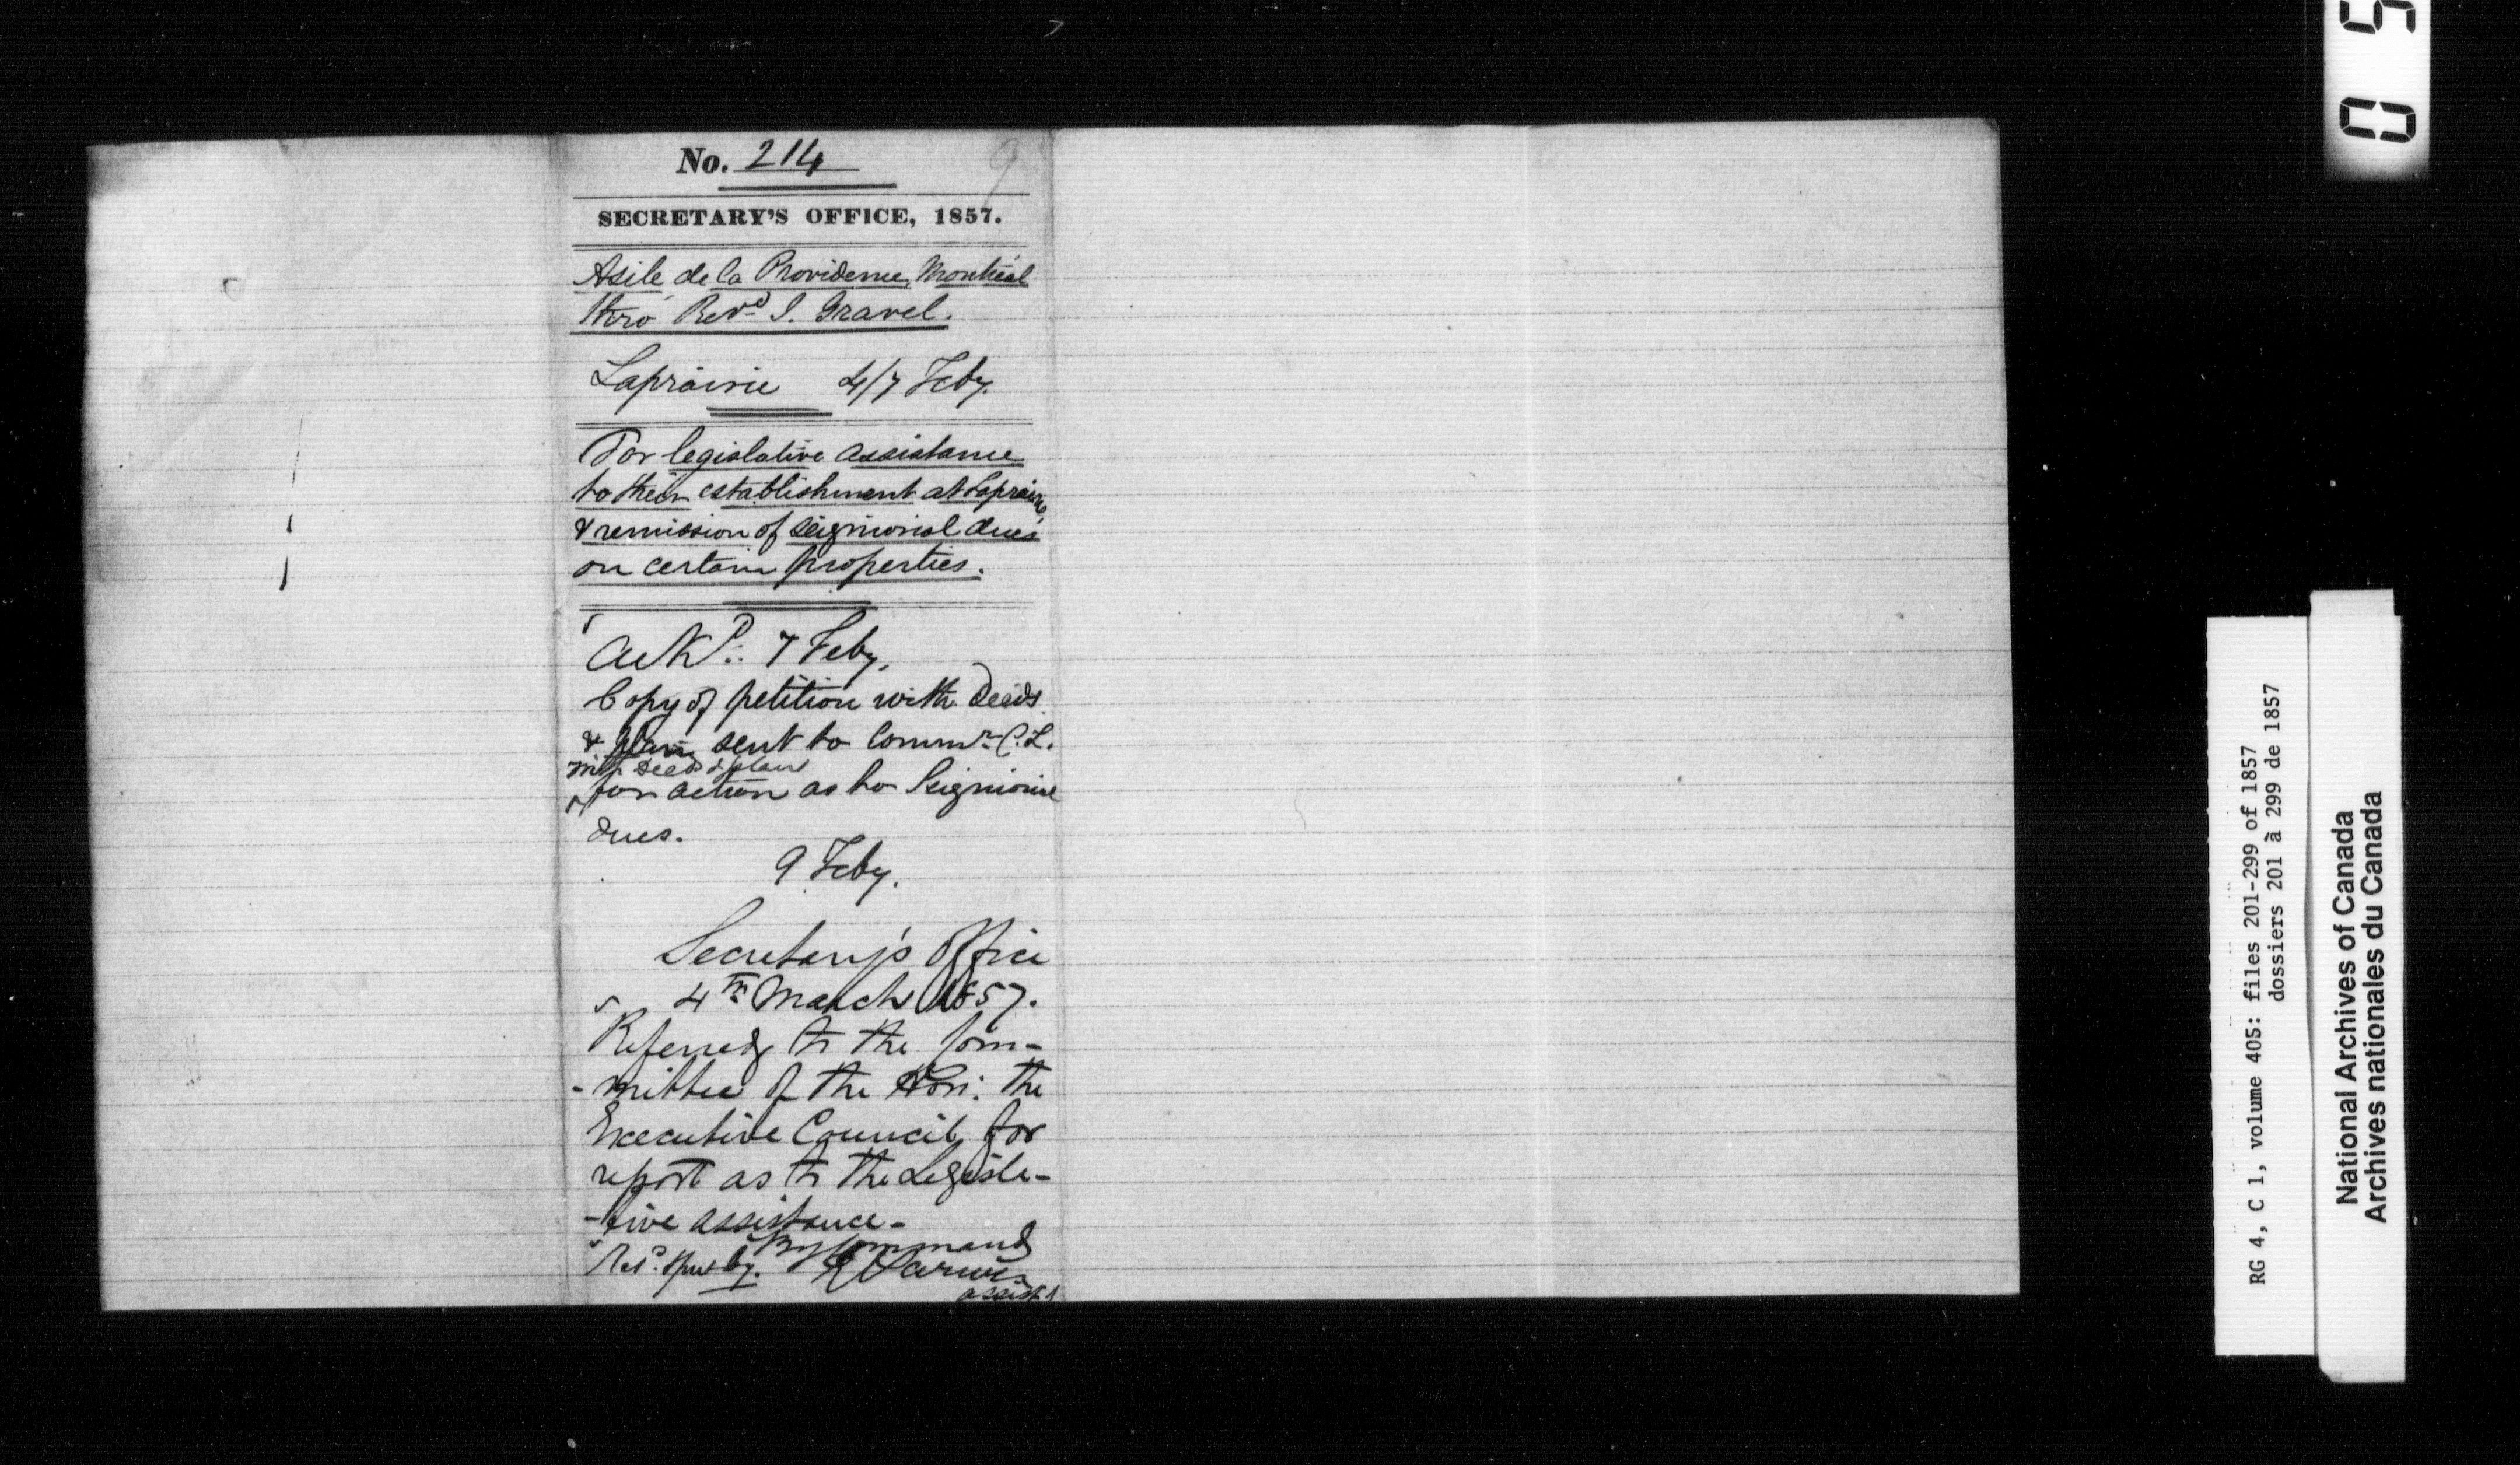 No. 214
9
SECRETARY'S OFFICE, 1857.
Asile de la Providence, Montréal
thro' Revd I. Gravel.
Laprairie 4/7 Feby.
For legislative assistance
to their establishment at Laprairie,
& remission of seigniorial dues
on certain properties.
Ackd: 7 Feby.
Copy of petition with Deeds
& plan sent to Commr. C. L.
with Deeds & plan
for action as to Seigniorial
dues.
9 Feby.
Secretary's Office
4th March 1857.
Referred to the Com-
-mittee of the Hon: the
Executive Council, for
report as to the Legisla-
-tive assistance -
By Command
Assist
0 5
RG 4, C 1, volume 405: files 201-299 of 1857
dossiers 201 à 299 de 1857
National Archives of Canada
Archives nationales du Canada